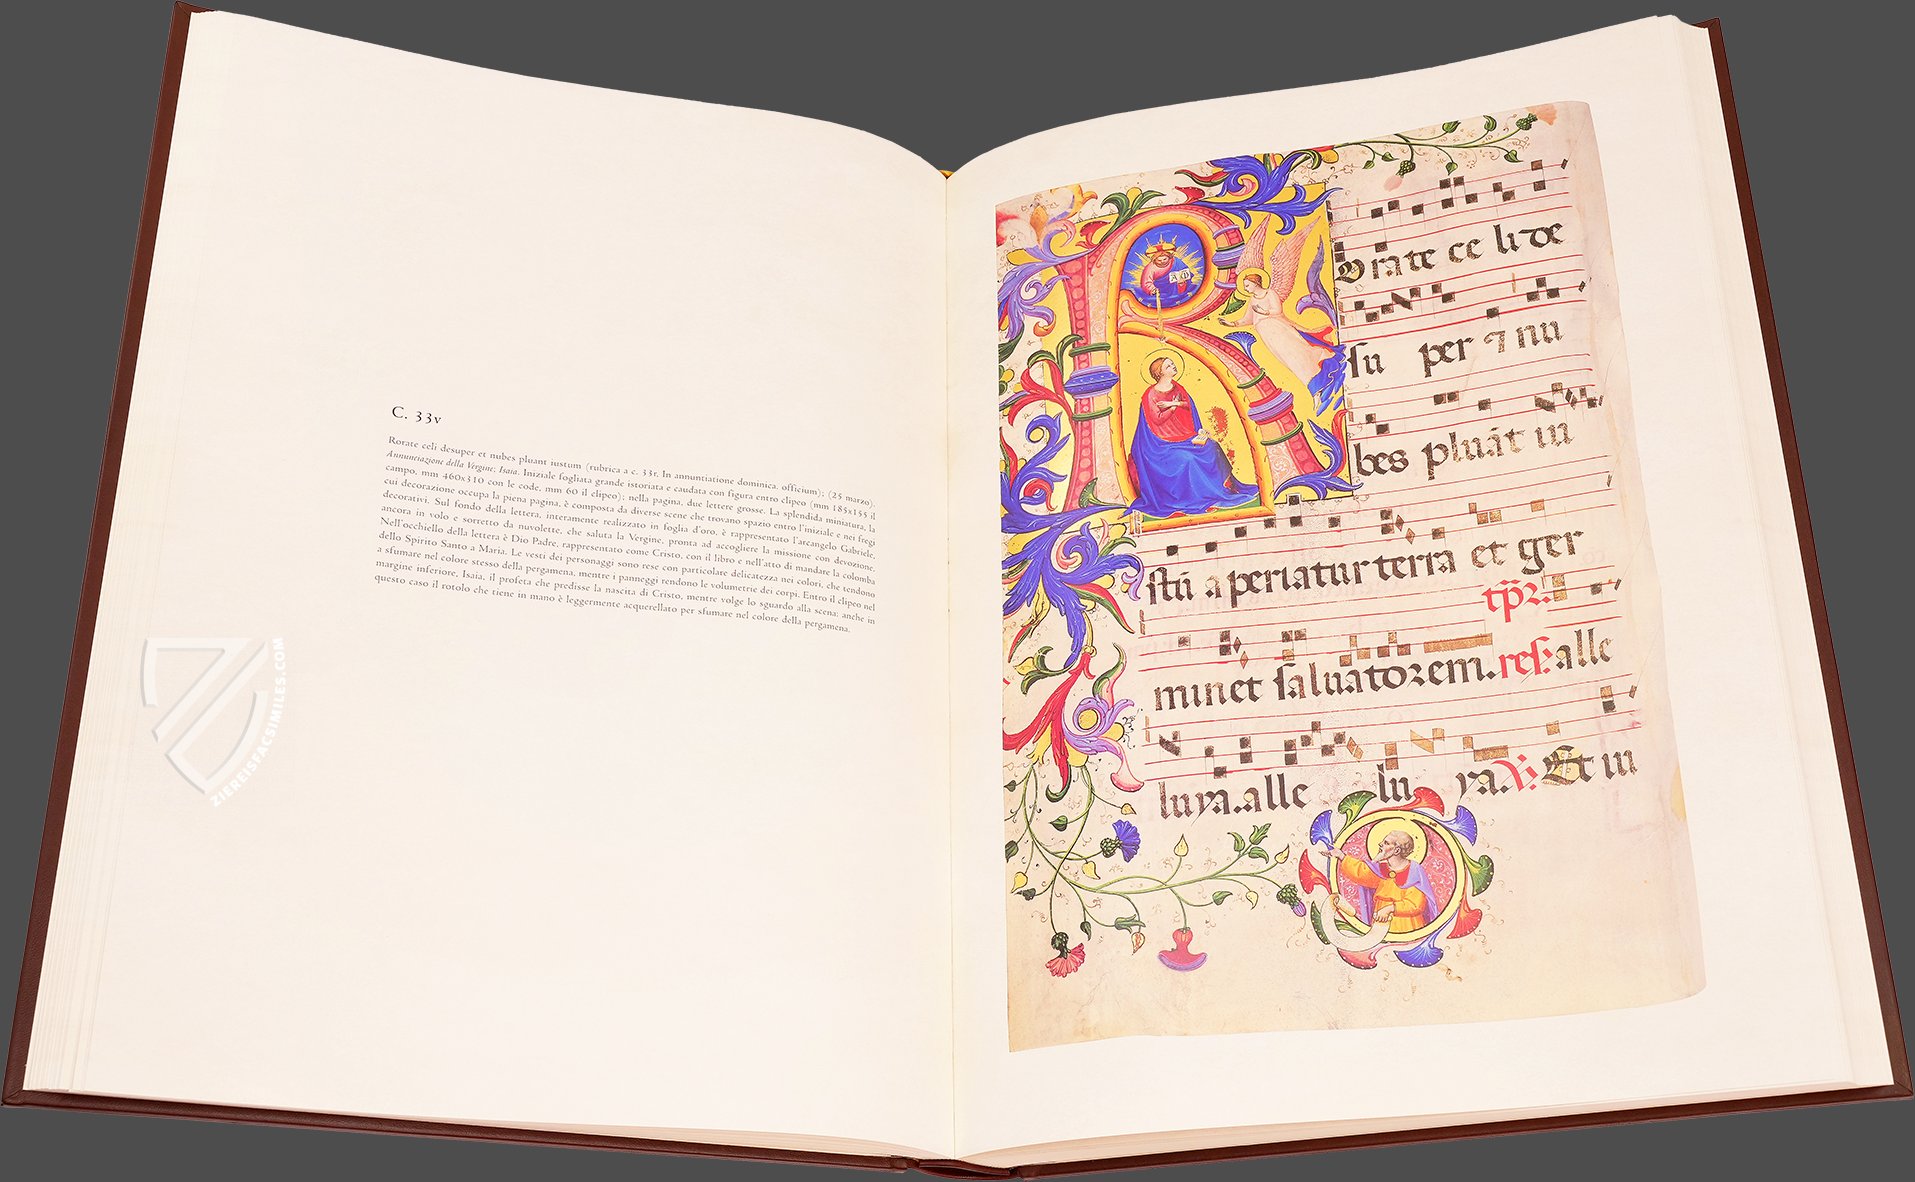 C. 33v
Rorate celi desuper et nubes pluant iustum (rubrica a c. 33r. In annuntiatione dominica. officium); (25 marzo).
Annunciazione della Vergine; Isaia. Iniziale fogliata grande istoriata e caudata con figura entro clipeo (mm 185x155 il
campo, mm 460x310 con le code, mm 60 il clipeo); nella pagina, due lettere grosse. La splendida miniatura, la
cui decorazione occupa la piena pagina, è composta da diverse scene che trovano spazio entro l'iniziale e nei fregi
decorativi. Sul fondo della lettera, interamente realizzato in foglia d'oro, è rappresentato l'arcangelo Gabriele,
ancora in volo e sorretto da nuvolette, che saluta la Vergine, pronta ad accogliere la missione con devozione.
Nell'occhiello della lettera è Dio Padre, rappresentato come Cristo, con il libro e nell'atto di mandare la colomba
dello Spirito Santo a Maria. Le vesti dei personaggi sono rese con particolare delicatezza nei colori, che tendono
a sfumare nel colore stesso della pergamena, mentre i panneggi rendono le volumetrie dei corpi. Entro il clipeo nel
margine inferiore, Isaia, il profeta che predisse la nascita di Cristo, mentre volge lo sguardo alla scena; anche in
questo caso il rotolo che tiene in mano è leggermente acquerellato per sfumare nel colore della pergamena.
ZIEREISFACSIMILES.COM
R Orate celi de
su per ⁊ nu
bes pluāt iu
stū aperiatur terra et ger
tp̄r.
minet saluatorem. res. alle
luya. alle lu ya. V. Et in